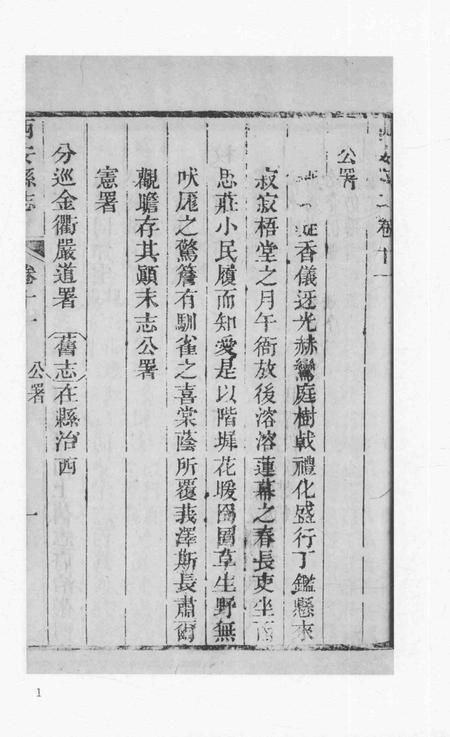 西安縣志卷十一
公署
香儀迓光赫鸞庭樹戟禮化盛行丁鑑懸來
寂寂梧堂之月午衙放後溶溶蓮幕之春長吏坐而
思莊小民履而知愛是以階墀花暖囹圄草生野無
吠厖之驚簷有馴雀之喜棠蔭所覆我澤斯長肅爾
觀瞻存其顚末志公署
憲署
分巡金衢嚴道署 舊志在縣治西
西安縣志 卷十一 公署 一
1